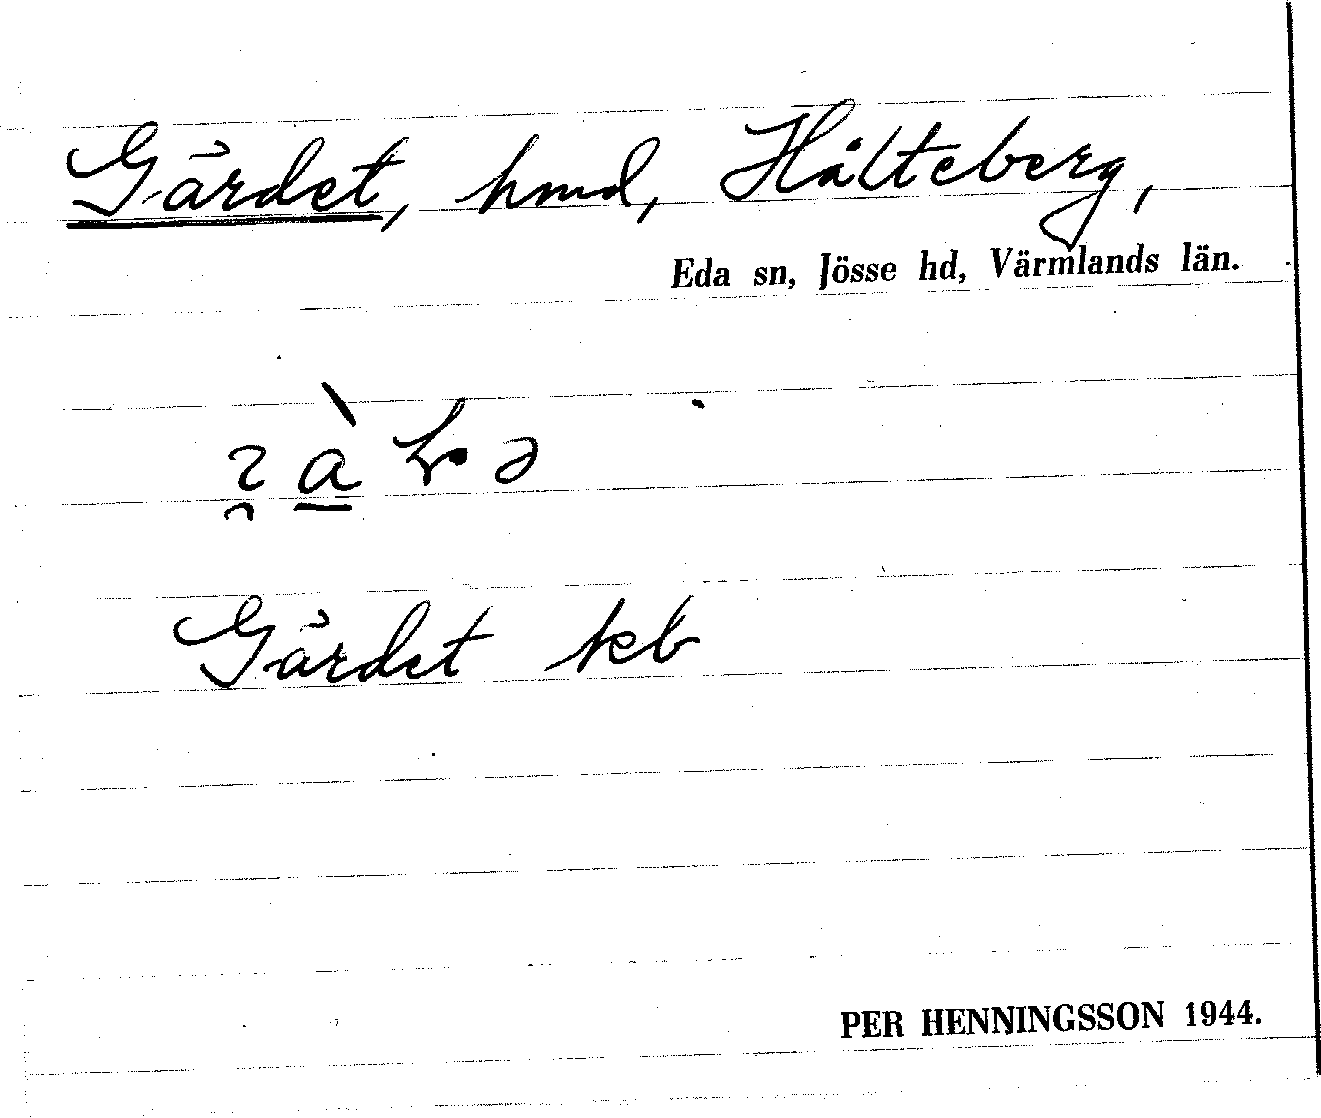 Gärdet, hmd, Hålteberg,
Eda sn, Jösse hd, Värmlands län.
Gärdet kb
PER HENNINGSSON 1944.